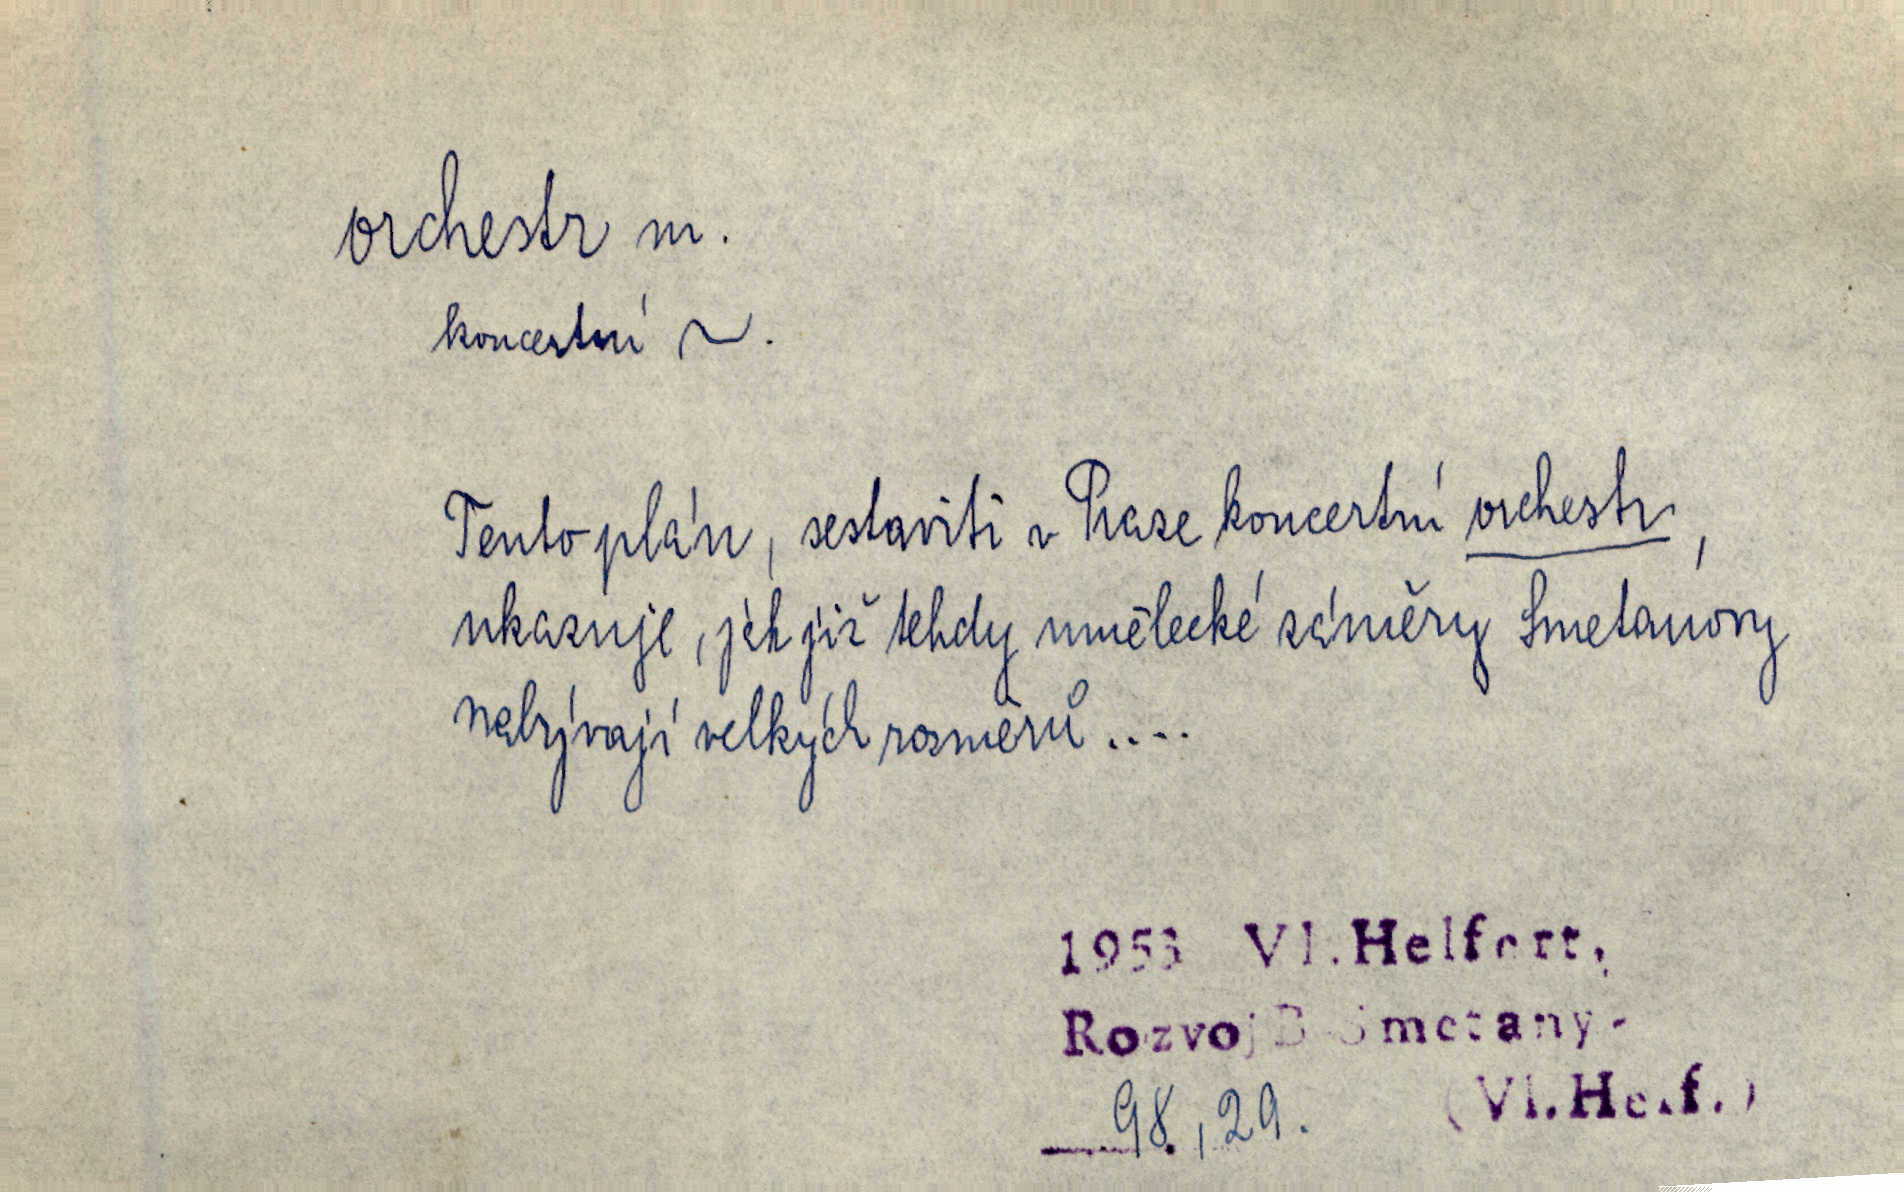 orchestr m.
koncertní ~.
Tento plán, sestaviti v Praze koncertní orchestr,
ukazuje, jak již tehdy umělecké záměry Smetanovy
nabývají velkých rozměrů....
1953 Vl. Helfert,
Rozvoj B. Smetany-
98, 29. (Vl. Helf.)